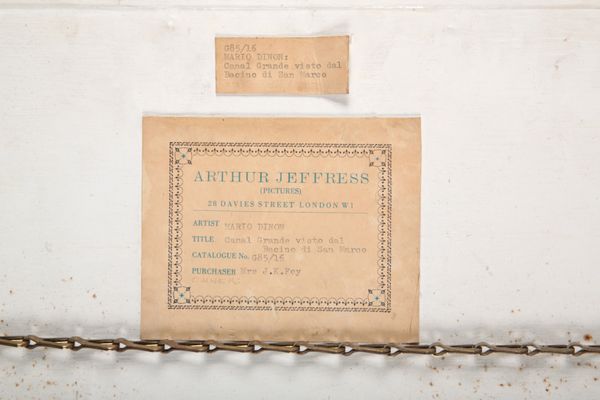 G85/16
MARIO DINON:
Canal Grande visto dal
Bacino di San Marco
ARTHUR JEFFRESS
(PICTURES)
28 DAVIES STREET LONDON W1
ARTIST MARIO DINON
TITLE Canal Grande visto dal
Bacino di San Marco
CATALOGUE No. G85/16
PURCHASER Mrs J.K.Foy